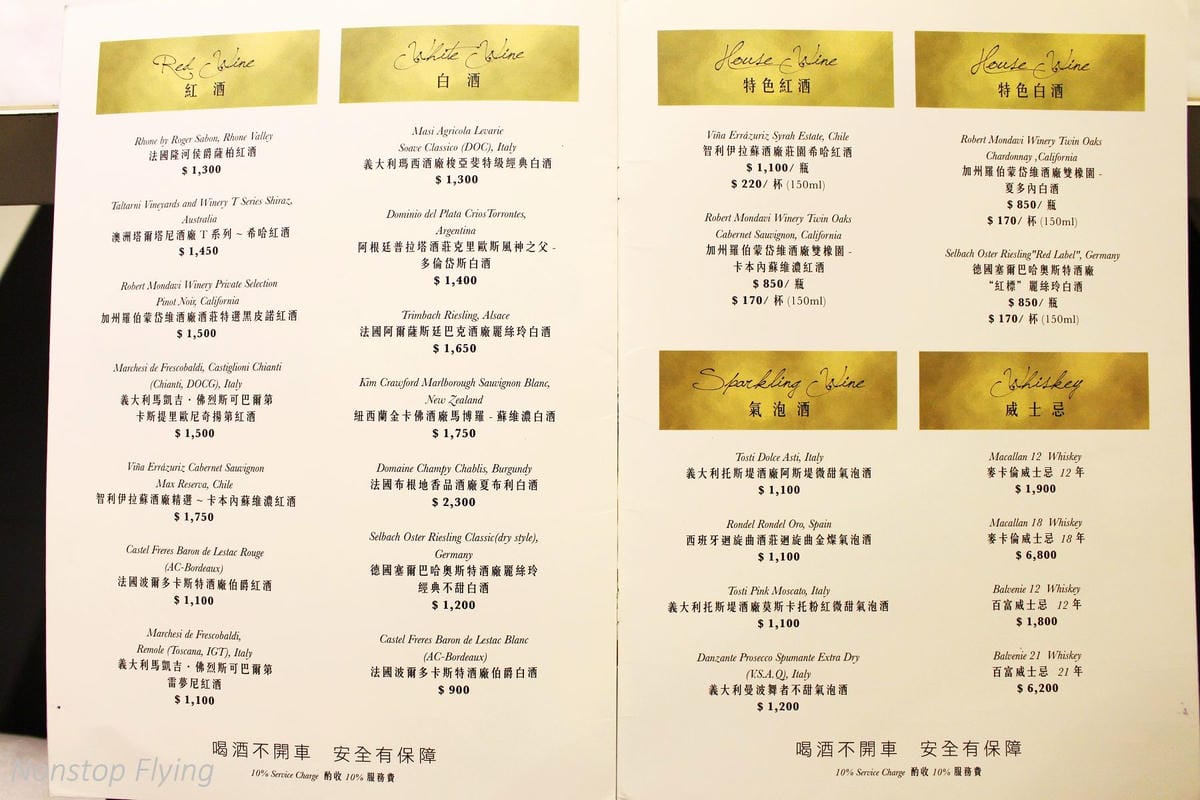 Red Wine
紅 酒
Rhone by Roger Sabon, Rhone Valley
法國隆河侯爵薩柏紅酒
$ 1,300
Taltarni Vineyards and Winery T Series Shiraz,
Australia
澳洲塔爾塔尼酒廠 T 系列 ~ 希哈紅酒
$ 1,450
Robert Mondavi Winery Private Selection
Pinot Noir, California
加州羅伯蒙岱維酒廠酒莊特選黑皮諾紅酒
$ 1,500
Marchesi de Frescobaldi, Castiglioni Chianti
(Chianti, DOCG), Italy
義大利馬凱吉・佛烈斯可巴爾第
卡斯提里歐尼奇揚第紅酒
$ 1,500
Viña Errázuriz Cabernet Sauvignon
Max Reserva, Chile
智利伊拉蘇酒廠精選 ~ 卡本內蘇維濃紅酒
$ 1,750
Castel Freres Baron de Lestac Rouge
(AC-Bordeaux)
法國波爾多卡斯特酒廠伯爵紅酒
$ 1,100
Marchesi de Frescobaldi,
Remole (Toscana, IGT), Italy
義大利馬凱吉・佛烈斯可巴爾第
雷夢尼紅酒
$ 1,100
White Wine
白 酒
Masi Agricola Levarie
Soave Classico (DOC), Italy
義大利瑪西酒廠梭亞斐特級經典白酒
$ 1,300
Dominio del Plata Crios Torrontes,
Argentina
阿根廷普拉塔酒莊克里歐斯風神之父 -
多倫岱斯白酒
$ 1,400
Trimbach Riesling, Alsace
法國阿爾薩斯廷巴克酒廠麗絲玲白酒
$ 1,650
Kim Crawford Marlborough Sauvignon Blanc,
New Zealand
紐西蘭金卡佛酒廠馬博羅 - 蘇維濃白酒
$ 1,750
Domaine Champy Chablis, Burgundy
法國布根地香品酒廠夏布利白酒
$ 2,300
Selbach Oster Riesling Classic(dry style),
Germany
德國塞爾巴哈奧斯特酒廠麗絲玲
經典不甜白酒
$ 1,200
Castel Freres Baron de Lestac Blanc
(AC-Bordeaux)
法國波爾多卡斯特酒廠伯爵白酒
$ 900
喝酒不開車 安全有保障
10% Service Charge 酌收 10% 服務費
House Wine
特色紅酒
Viña Errázuriz Syrah Estate, Chile
智利伊拉蘇酒廠莊園希哈紅酒
$ 1,100/ 瓶
$ 220/ 杯 (150ml)
Robert Mondavi Winery Twin Oaks
Cabernet Sauvignon, California
加州羅伯蒙岱維酒廠雙橡園 -
卡本內蘇維濃紅酒
$ 850/ 瓶
$ 170/ 杯 (150ml)
House Wine
特色白酒
Robert Mondavi Winery Twin Oaks
Chardonnay ,California
加州羅伯蒙岱維酒廠雙橡園 -
夏多內白酒
$ 850/ 瓶
$ 170/ 杯 (150ml)
Selbach Oster Riesling"Red Label", Germany
德國塞爾巴哈奧斯特酒廠
“紅標” 麗絲玲白酒
$ 850/ 瓶
$ 170/ 杯 (150ml)
Sparkling Wine
氣 泡 酒
Tosti Dolce Asti, Italy
義大利托斯堤酒廠阿斯堤微甜氣泡酒
$ 1,100
Rondel Rondel Oro, Spain
西班牙迴旋曲酒莊迴旋曲金燦氣泡酒
$ 1,100
Tosti Pink Moscato, Italy
義大利托斯堤酒廠莫斯卡托粉紅微甜氣泡酒
$ 1,100
Danzante Prosecco Spumante Extra Dry
(V.S.A.Q), Italy
義大利曼波舞者不甜氣泡酒
$ 1,200
Whiskey
威 士 忌
Macallan 12 Whiskey
麥卡倫威士忌 12 年
$ 1,900
Macallan 18 Whiskey
麥卡倫威士忌 18 年
$ 6,800
Balvenie 12 Whiskey
百富威士忌 12 年
$ 1,800
Balvenie 21 Whiskey
百富威士忌 21 年
$ 6,200
喝酒不開車 安全有保障
10% Service Charge 酌收 10% 服務費
Nonstop Flying